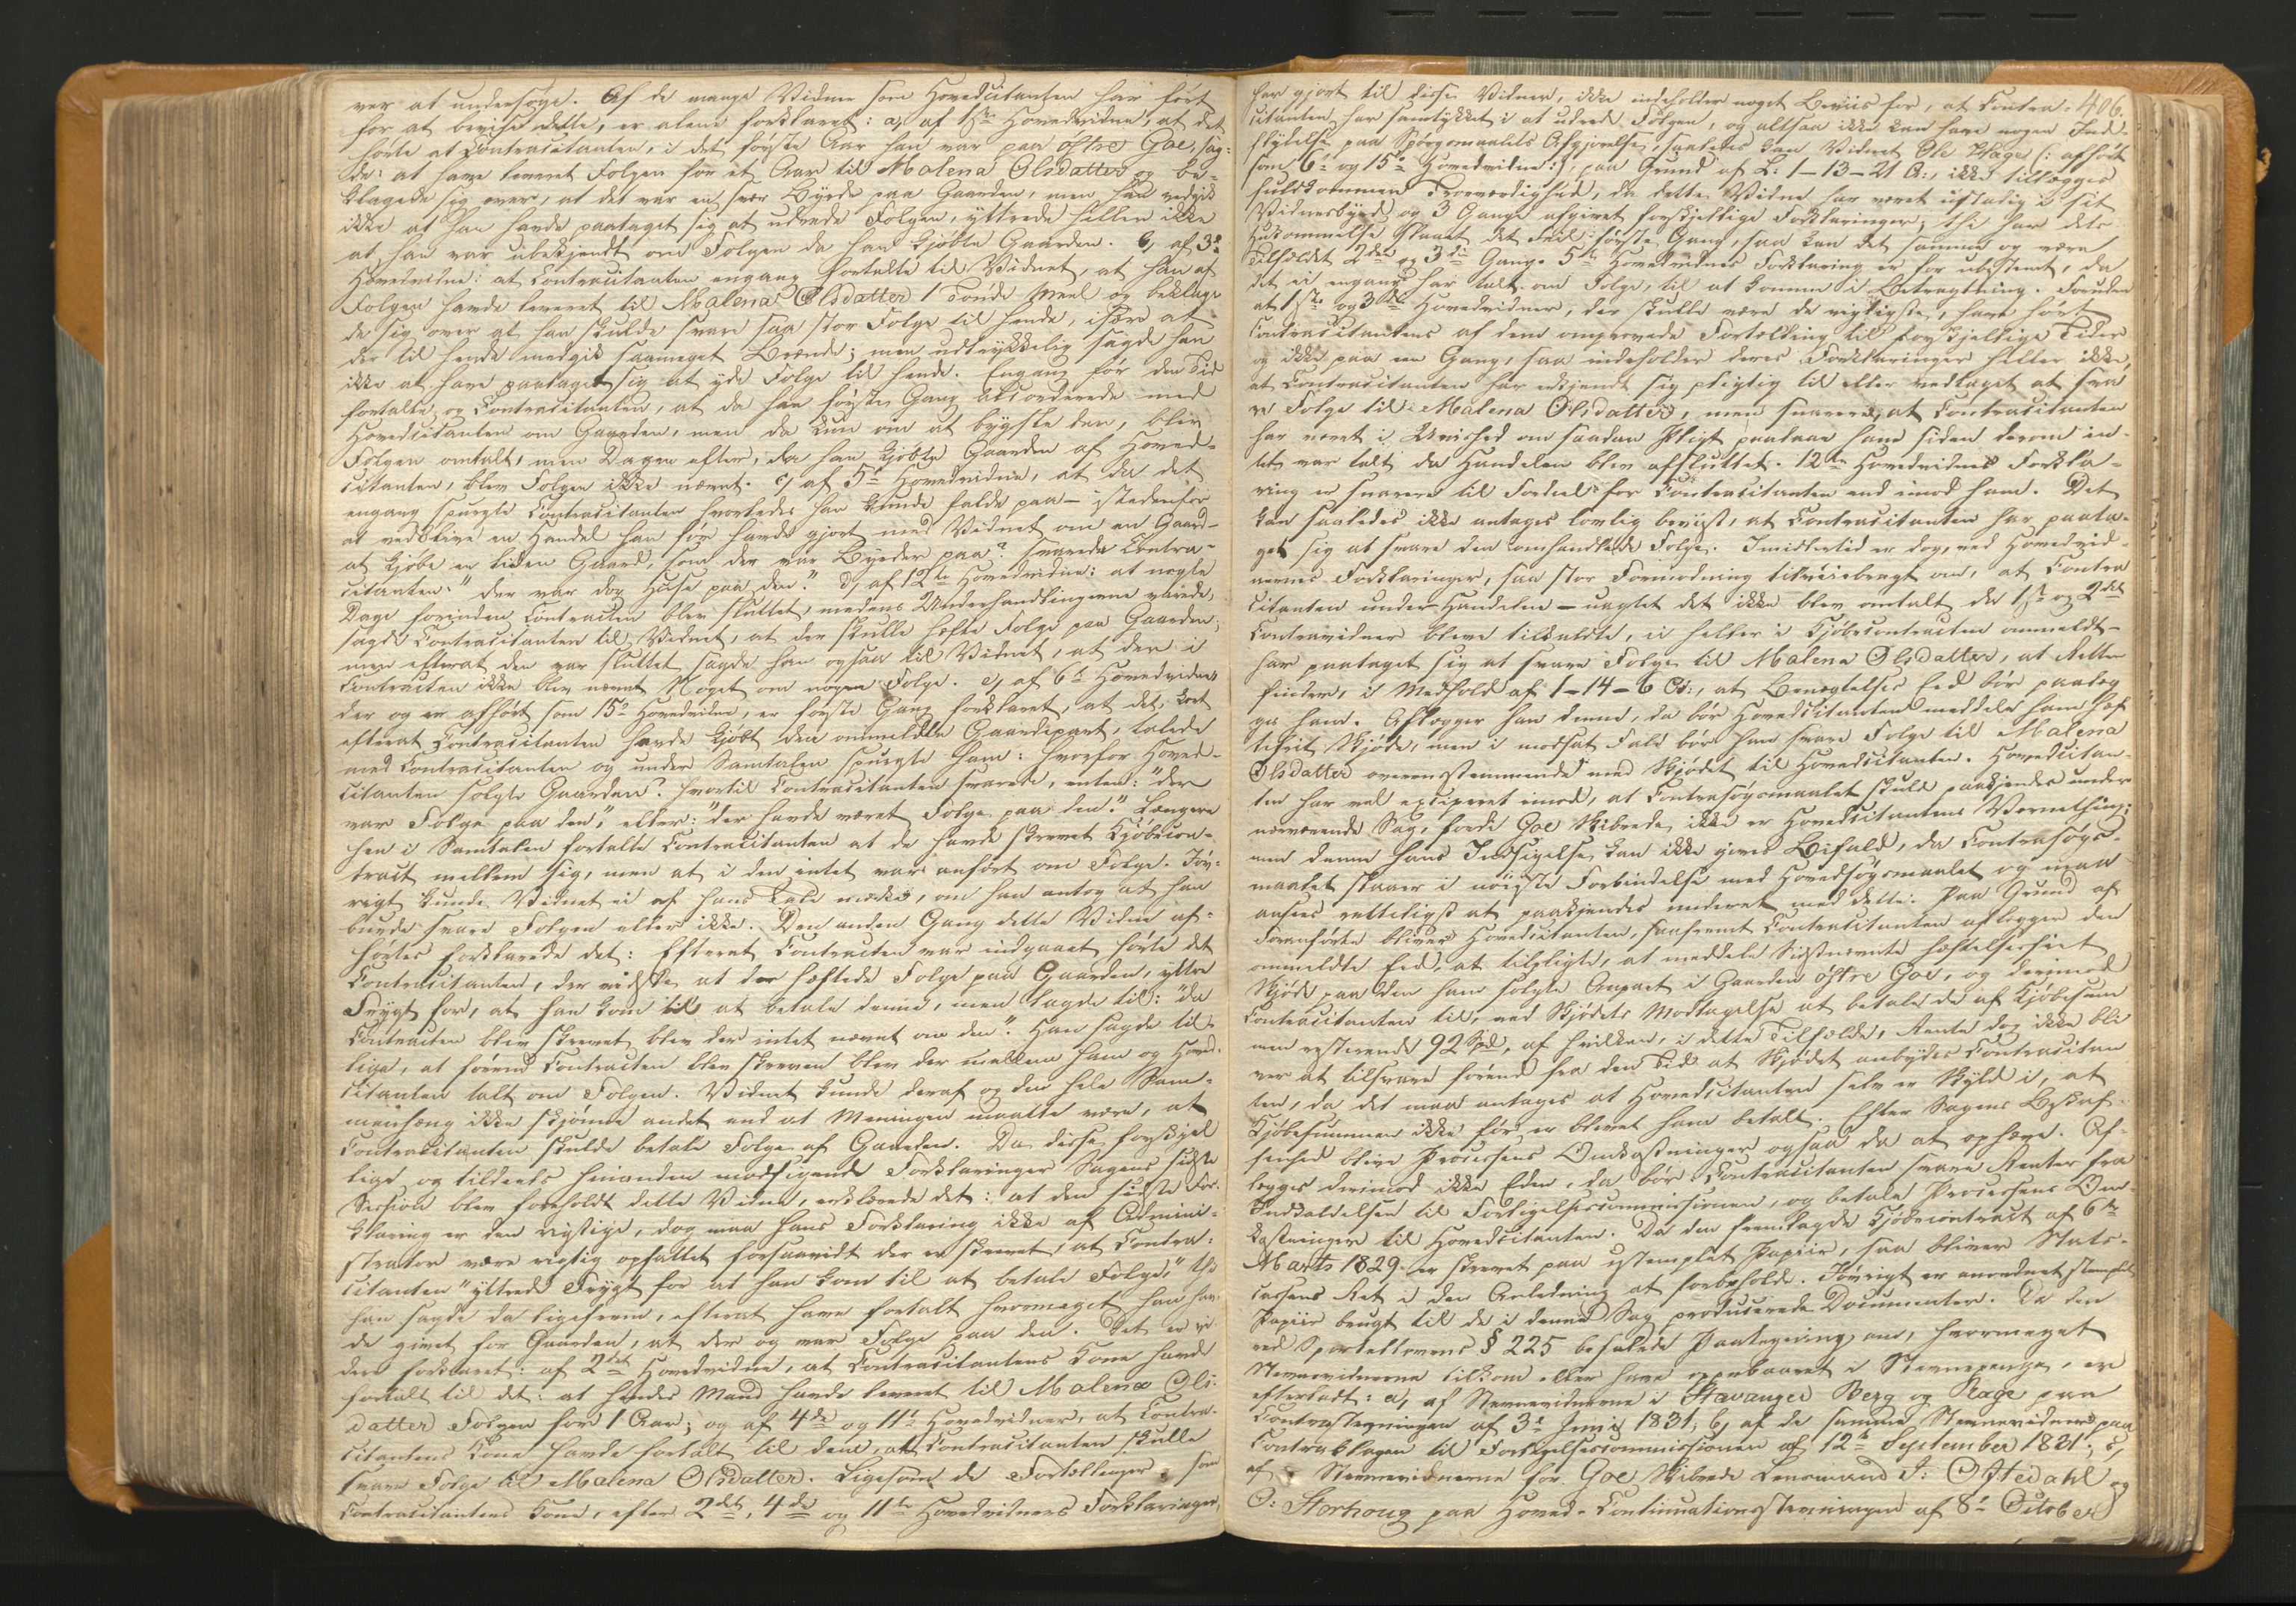 ver at undersøge. Af de mange Vidner som Hovedcitanten har ført
for at bevise dette, er alene forklaret: a, af 1ste Hovedvidne, at det
hørte at Contracitanten, i det første Aar han var paa østre Goe, sag-
de: at have leveret Folgen for et Aar til Malena Olsdatter og be-
klagede sig over, at det var en svær Byrde paa Gaarden, men han vedgik
ikke at han havde paataget sig at udrede Folgen, yttrede heller ikke
at han var ubekjendt om Folgen da han kjøbte Gaarden. b, af 3e
Hovedvidne: at Contracitanten engang fortalte til Vidnet, at han af
Folgen havde leveret til Malena Olsdatter 1 Tønde Meel og beklage
de sig over at han skulde svare saa stor Folge til hende, især at
der til hende medgik saameget Brænde; men udtrykkelig sagde han
ikke at have paataget sig at yde Folge til hende. Engang før den Tid
fortalte og Contracitanten, at da han første Gang accorderede med
Hovedcitanten om Gaarden, men da kun om at bygsle den, blev
Folgen omtalt, men Dagen efter, da han kjøbte Gaarden af Hoved-
citanten, blev Folgen ikke nævnt. c, af 5e Hovedvidne, at da det
engang spurgte Contracitanten hvorledes han kunde falde paa – istedenfor
at vedblive en Handel han før havde gjort med Vidnet om en Gaard –
at kjøbe en liden Gaard, som der var Byrder paa? svarede Contra-
citanten: "der var dog Huse paa den." d, af 12te Hovedvidne: at nogle
Dage forinden Contracten blev sluttet, medens Underhandlingerne varede,
sagde Contracitanten til Vidnet, at der skulle hefte Folge paa Gaarden,
men efterat den var sluttet sagde han ogsaa til Vidnet, at der i
Contracten ikke blev nævnt Noget om nogen Folge. e, af 6te Hovedvidne
der og er afhørt som 15e Hovedvidne, er første Gang forklaret, at det, kort
efterat Contracitanten havde kjøbt den ommeldte Gaardepart, talede
med Contracitanten og under Samtalen spurgte ham: hvorfor Hoved-
citanten solgte Gaarden? hvortil Contracitanten svarede, enten: "der
var Folge paa den," eller: "der havde været Folge paa den." Længere
hen i Samtalen fortalte Contracitanten at de havde skrevet Kjøbecon-
tract mellem sig, men at i den intet var anført om Folge. Iøv-
rigt kunde Vidnet ei af hans Tale mærke, om han antog at han
burde svare Folgen eller ikke. Den anden Gang dette Vidne af-
hørtes forklarede det: Efterat Contracten var indgaaet hørte det
Contracitanten, der vidste at der heftede Folge paa Gaarden, yttre
Frygt for, at han kom til at betale denne, men sagde til: "da
Contracten blev skrevet blev der intet nævnt om den". Han sagde til-
lige, at førend Contracten blev skreven blev der mellem ham og Hoved-
citanten talt om Folgen. Vidnet kunde deraf og den hele Sam-
menhæng ikke skjønne andet end at Meningen maatte være, at
Contracitanten skulde betale Folge af Gaarden. Da disse forskjel
lige og tildeels hinanden modsigende Forklaringer Sagens sidste
Session blev foreholdt dette Vidne, erklærede det: at den sidste For-
klaring er den rigtige, dog maa hans Forklaring ikke af Admini-
strator være rigtig opfattet forsaavidt der er skrevet, at Contra-
citanten "yttrede Frygt for at han kom til at betale Folge," thi
han sagde da ligefrem, efterat have fortalt hvormeget han hav-
de givet for Gaarden, at der og var Folge paa den. Det er vi
der forklaret: af 2det Hovedvidne, at Contracitantens Kone havde
fortalt til det: at hendes Mand havde leveret til Malena Ols-
datter Folgen for 1 Aar; og af 4de og 11te Hovedvidner, at Contra-
citantens Kone havde fortalt til dem, at Contracitanten skulle
svare Folge til Malena Olsdatter. Ligesom de Fortællinger, som
Contracitantens Kone, efter 2det, 4de og 11te Hovedvidners Forklaringer,
406.
har gjort til disse Vidner, ikke indeholder noget Beviis for, at Contra-
citanten har samtykket i at udrede Folgen, og altsaa ikke kan have nogen Ind-
flydelse paa Spørgsmaalets Afgjørelse, saaledes kan Vidnet Ole Hage (: afhørt
som 6te og 15de Hovedvidne:), paa Grund af L: 1–13–21 A:, ikke tillægges
fuldkommen Troværdighed, da dette Vidne har været ustadig i sit
Vidnesbyrd og 3 Gange afgivet forskjellige Forklaringer; thi har dets
Hukommelse slaaet det Feil første Gang, saa kan det samme og være
Tilfældet 2den og 3die Gang. 5te Hovedvidnes Forklaring er for ubestemt, da
det ei engang har talt om Folge, til at komme i Betragtning. Foruden
at 1ste og 3de Hovedvidner, der skulle være de vigtigste, have hørt
Contracitantens af dem omprovede Fortælling til forskjellige Tider
og ikke paa een Gang, saa indeholder deres Forklaringer heller ikke,
at Contracitanten har erkjendt sig pligtig til eller vedtaget at sva
re Folge til Malena Olsdatter, men snarere, at Contracitanten
har været i Uvished om saadan Pligt paalaae ham siden derom in-
tet var talt da Handelen blev afsluttet. 12te Hovedvidnes Forkla-
ring er snarere til Fordeel for Contracitanten end imod ham. Det
kan saaledes ikke antages lovlig beviist, at Contracitanten har paata-
get sig at svare den omhandlede Folge. Imidlertid er dog, ved Hovedvid-
nernes Forklaringer, saa stor Formodning tilveiebragt om, at Contra
citanten under Handelen – uagtet det ikke blev omtalt da 1ste og 2det
Contravidner bleve tilkaldte, ei heller i Kjøbecontracten ommeldt –
har paataget sig at svare Folge til Malena Olsdatter, at Retten
finder, i Medhold af 1–14–6 Cd:, at Benægtelses Eed bør paalæg
ges ham. Aflægger han denne, da bør Hovedcitanten meddele ham hef
telsfrit Skjøde, men i modsat Fald bør han svare Folge til Malena
Olsdatter overensstemmende med Skjødet til Hovedcitanten. Hovedcitan-
ten har vel exciperet imod, at Contrasøgsmaalet skulde paakjendes under
nærværende Sag, fordi Goe Skibrede ikke er Hovedcitantens Værnething;
men denne hans Indsigelse kan ikke gives Bifald, da Contrasøgs-
maalet staaer i nøieste Forbindelse med Hovedsøgsmaalet og maa
ansees retteligst at paakjendes underet med dette. Paa Grund af
Foranførte bliver Hovedcitanten, saafremt Contracitanten aflægger den
ommeldte Eed, at tilpligte, at meddele Sidstnævnte heftelsesfriet
Skjøde paa den ham solgte Anpart i Gaarden østre Goe, og derimod
Contracitanten til, ved Skjødets Modtagelse at betale de af Kjøbesum
men resterende 92 Spd, af hvilken, i dette Tilfælde, Rente dog ikke bli
ver at tilsvare førend fra den Tid at Skjødet anbydes Contracitan
ten, da det maa antages at Hovedcitanten selv er Skyld i, at
Kjøbesummen ikke før er blevet ham betalt. Efter Sagens Beskaf-
fenhed blive Processens Omkostninger ogsaa da at ophæve. Af-
lægges derimod ikke Eden, da bør Contracitanten svare Renter fra
Indkaldelsen til Forligelsescommissionen, og betale Processens Om-
kostninger til Hovedcitanten. Da den fremlagde Kjøbecontract af 6te
Marts 1829 er skrevet paa ustemplet Papiir, saa bliver Stats-
cassens Ret i den Anledning at forbeholde. Iøvrigt er anordnet stemplet
Papiir brugt til de i denne Sag producerede Documenter. Da den
ved Sportellovens § 225 befalede Paategning om, hvormeget
Stevnevidnerne tilkom eller have oppebaaret i Stevnepenge, er
efterladt: a, af Stevnevidnerne i Stavanger Berg og Rage paa
Contrastevningen af 3e Juni 1831; b, af de samme Stevnevidner paa
Contraklagen til Forligelsescommissionen af 12te September 1831; c,
af Stevnevidnerne for Goe Skibrede Lensmand T: Oftedahl og
O: Storhoug paa Hoved-Continuationsstevningen af 8de October